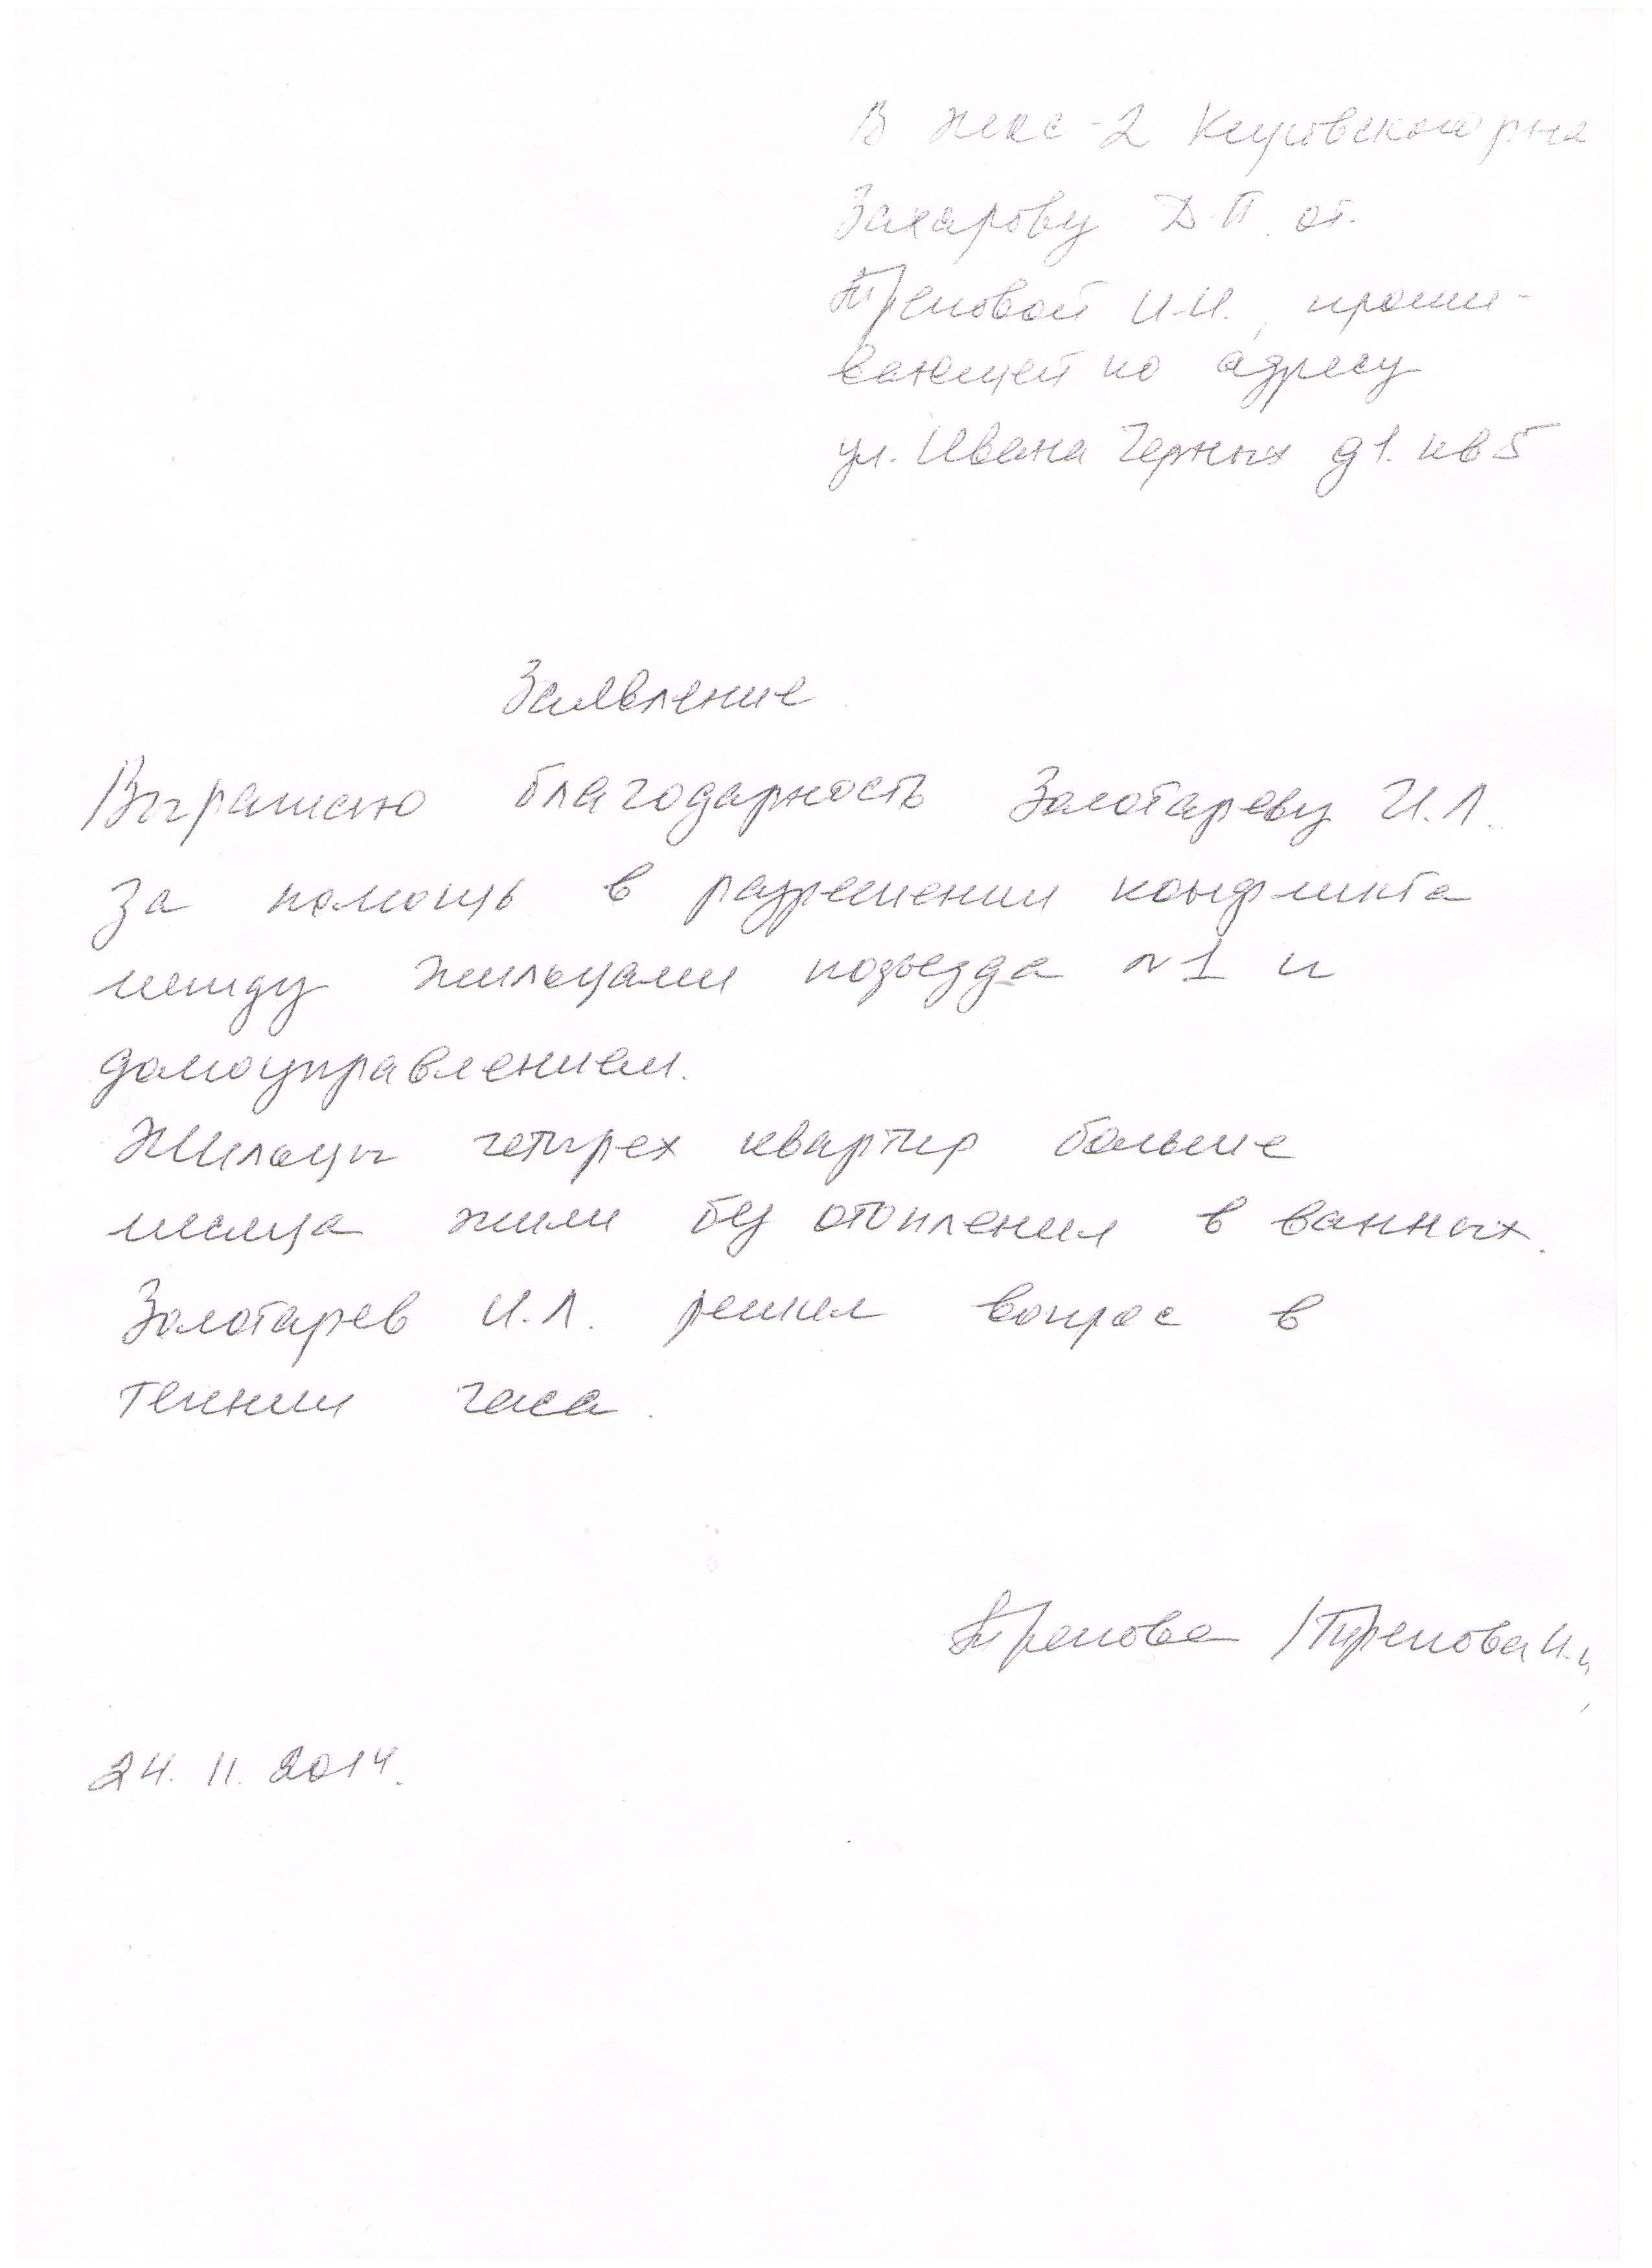 В жкс-2 Кировского р-на
Захарову Д.П. от.
Треповой И.И., прожи-
вающей по адресу
ул. Ивана Черных д1. кв 5
Заявление.
Выражаю благодарность Золотареву И.Л.
за помощь в разрешении конфликта
между жильцами подъезда №1 и
домоуправлением.
Жильцы четырех квартир больше
месяца жили без отопления в ванных.
Золотарев И.Л. решил вопрос в
течении часа.
Трепова /Трепова И.И,
24.11.2014.